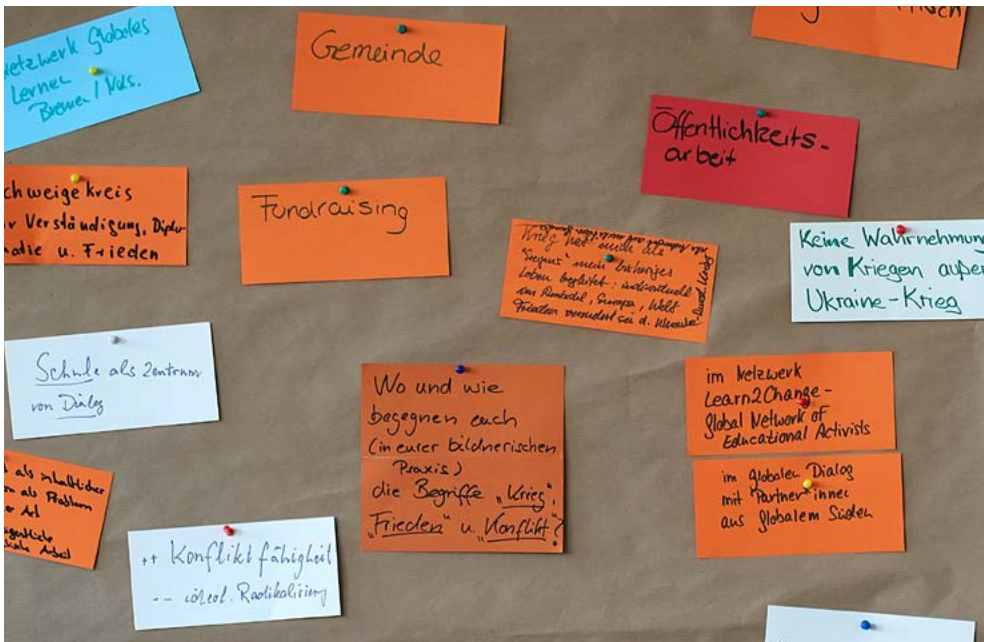 Netzwerk Globales
Lernen
Bremen / Nds.
Gemeinde
Öffentlichkeits-
arbeit
chweigekreis
r Verständigung, Diplo-
matie u. Frieden
Fundraising
Krieg hat mich als
mein bisheriges
Leben begleitet: individuell
Europa, Welt
Frieden
Keine Wahrnehmung
von Kriegen außer
Ukraine-Krieg
Schule als Zentrum
von Dialog
Wo und wie
begegnen euch
(in eurer bildnerischen
Praxis)
die Begriffe „Krieg",
„Frieden" u. „Konflikt"?
im Netzwerk
Learn2Change-
Global Network of
Educational Activists
im globalen Dialog
mit Partner*innen
aus Globalem Süden
als inhaltlicher
als Problem
Art
++ Konfliktfähigkeit
-- ideol. Radikalisierung